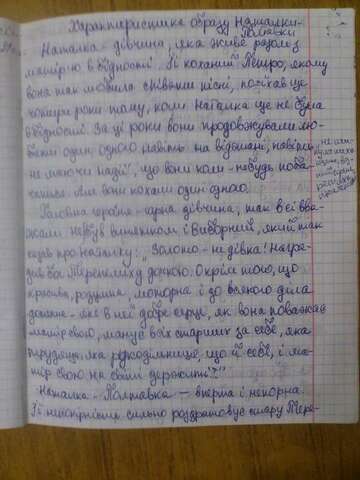 Характеристика образу Наталки-
Полтавки
Наталка - дівчина, яка живе разом з
матір'ю в бідності. Її коханий Петро, якому
вона так любила співати пісні, поїхав ще
чотири роки тому, коли Наталка ще не була
в бідності. За ці роки вони продовжували лю-
бити один одного навіть на відстані, навіть
не маючи надії, що вони коли-небудь поба-
чаться. Але вони кохали один одного.
Головна героїня - гарна дівчина, так її вва-
жали не був винятком і Виборний, який так
казав про Наталку: „Золото - не дівка! Нагро-
див бог Терпелиху дочкою. Окрім того, що
красива, розумна, моторна і до всякого діла
дотепна - яке в неї добре серце, як вона поважає
матір свою, шанує всіх старших за себе, яка
трудяща, яка рукодільниця, що й себе, і ма-
тір свою на світі держить!"
Наталка - Полтавка — вперта і непокірна.
Її непокірність сильно роздратовує стару Тере-